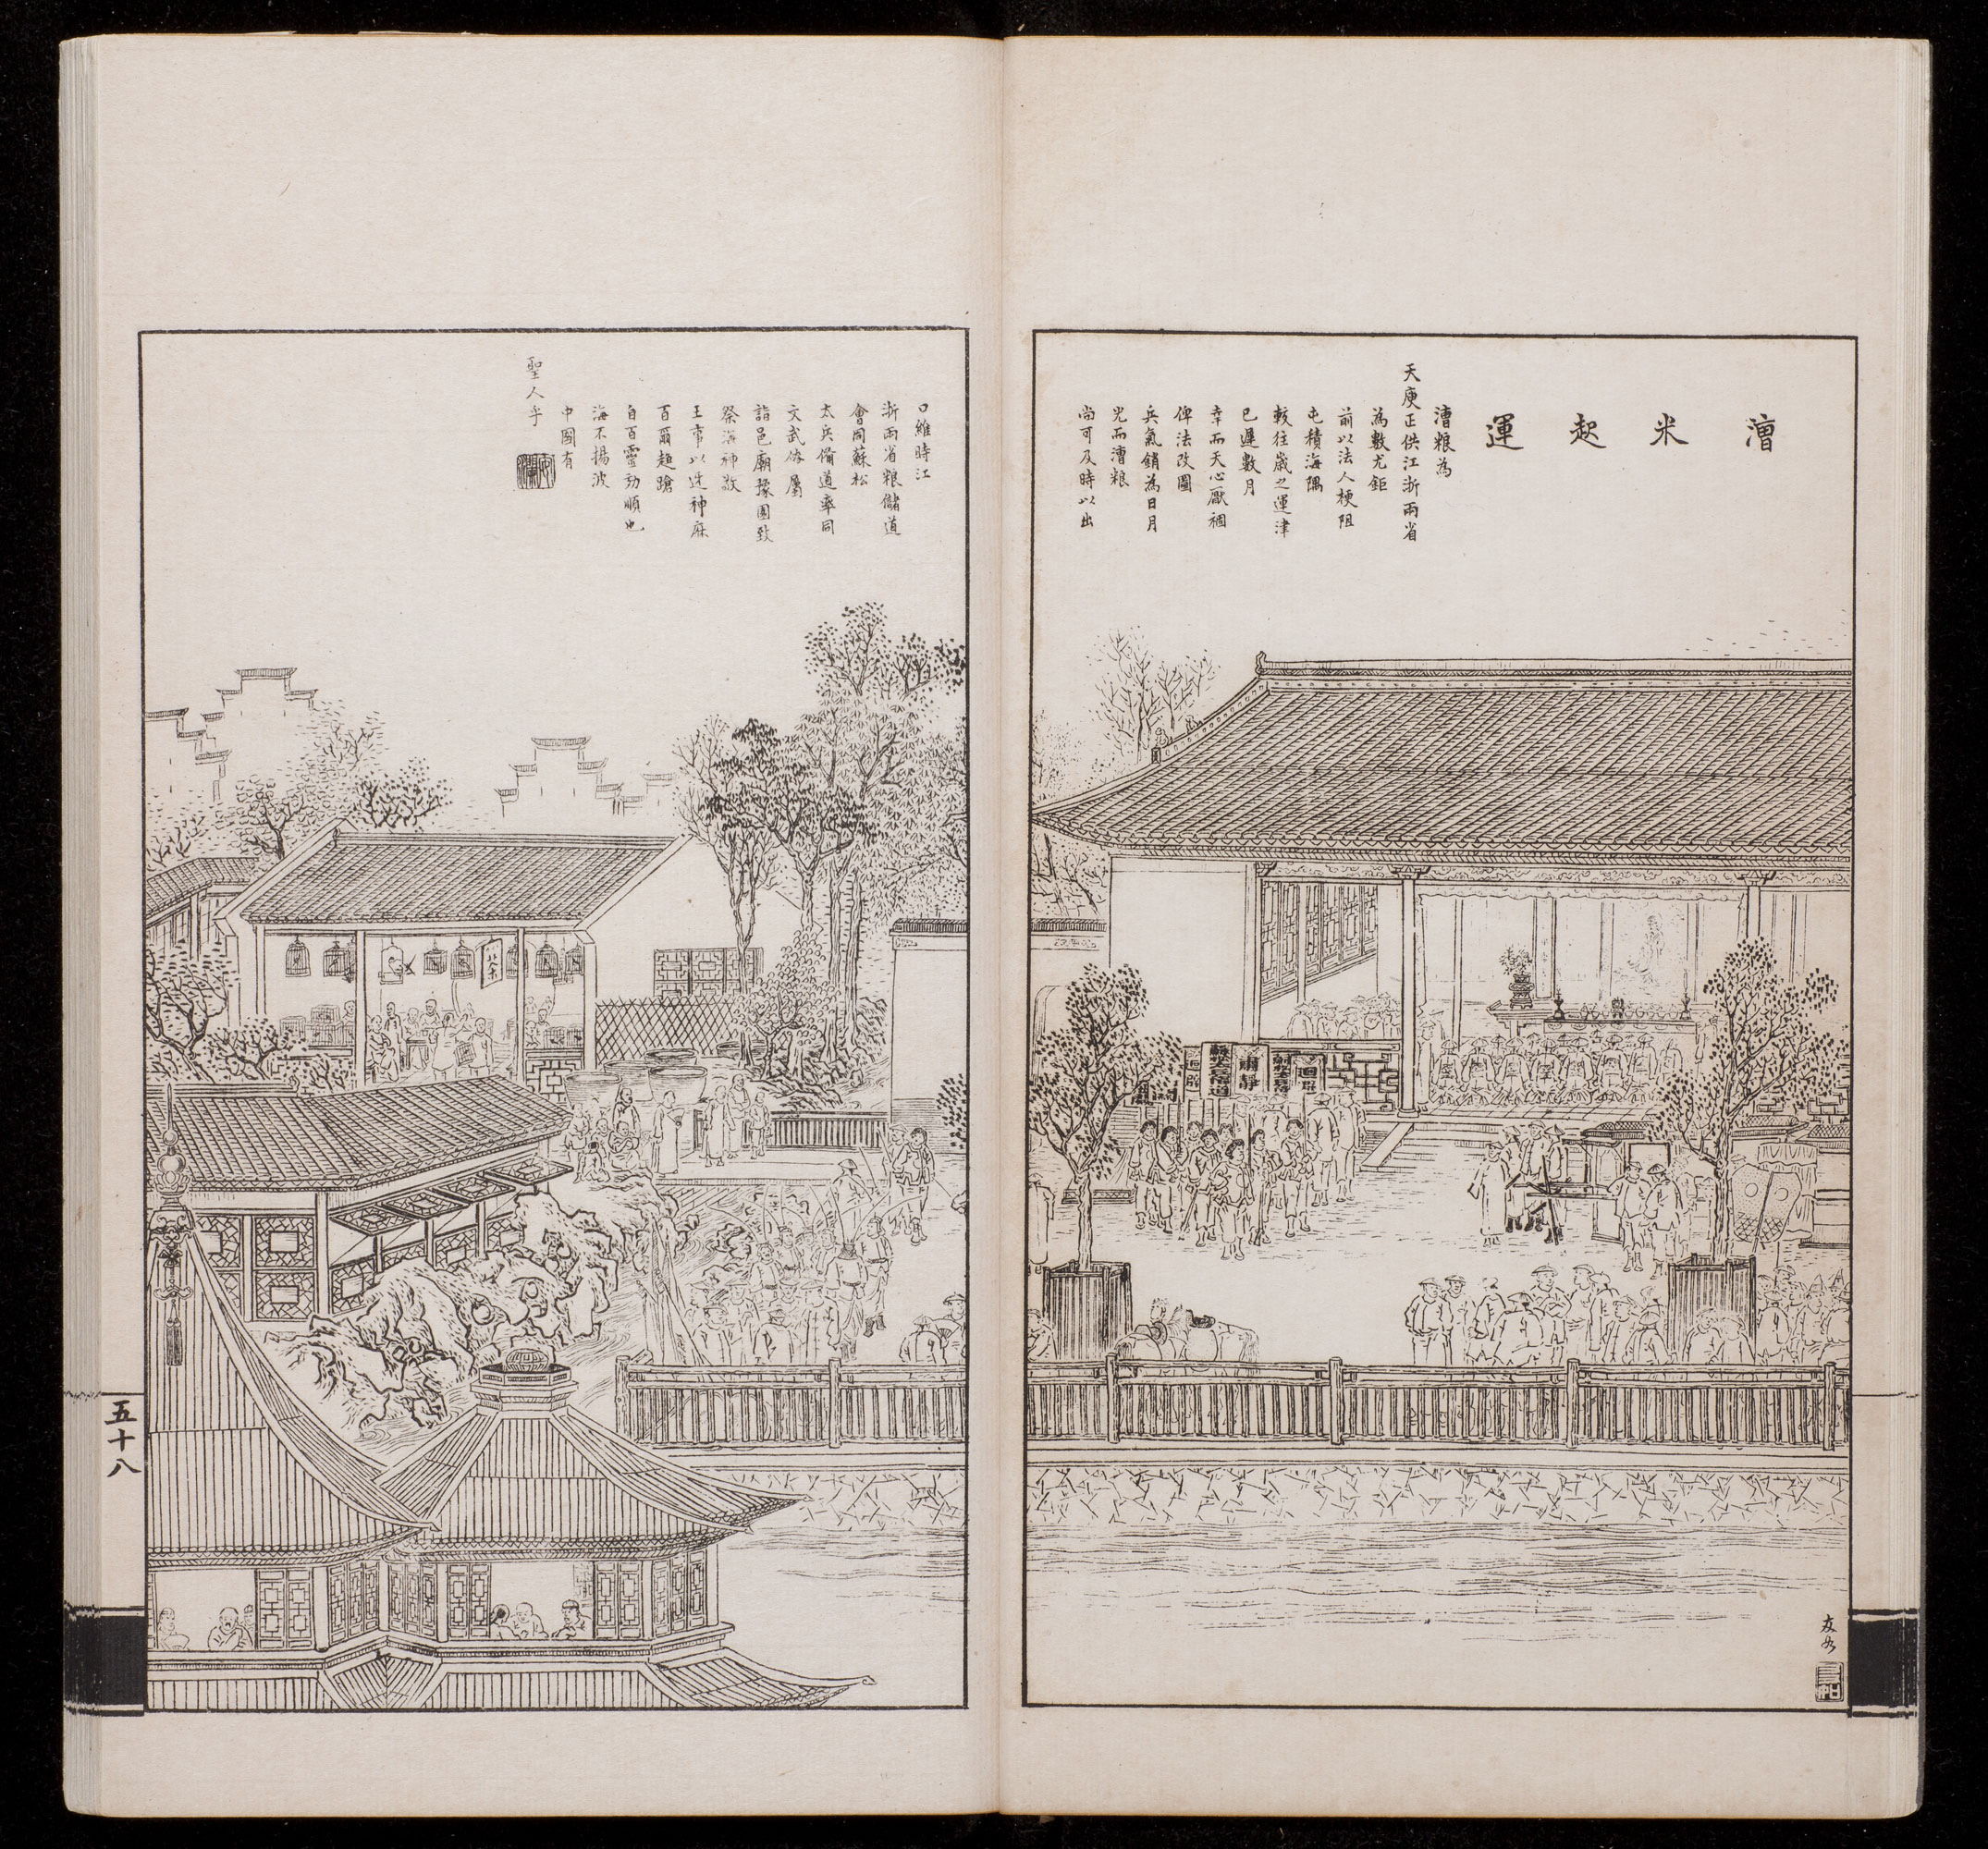 漕米起運
漕粮為
天庾正供江浙兩省
為數尤鉅
前以法人梗阻
屯積海隅
較往歲之運津
已遲數月
幸而天心厭禍
俾法改圖
兵氣銷為日月
光而漕粮
尚可及時以出
口維時江
浙兩省粮儲道
會同蘇松
太兵備道率同
文武僚屬
詣邑廟豫園致
祭海神故
王事以迓神庥
百爾趨蹌
自百靈効順也
海不揚波
中國有
聖人乎
肅靜
迴避
友如
五十八